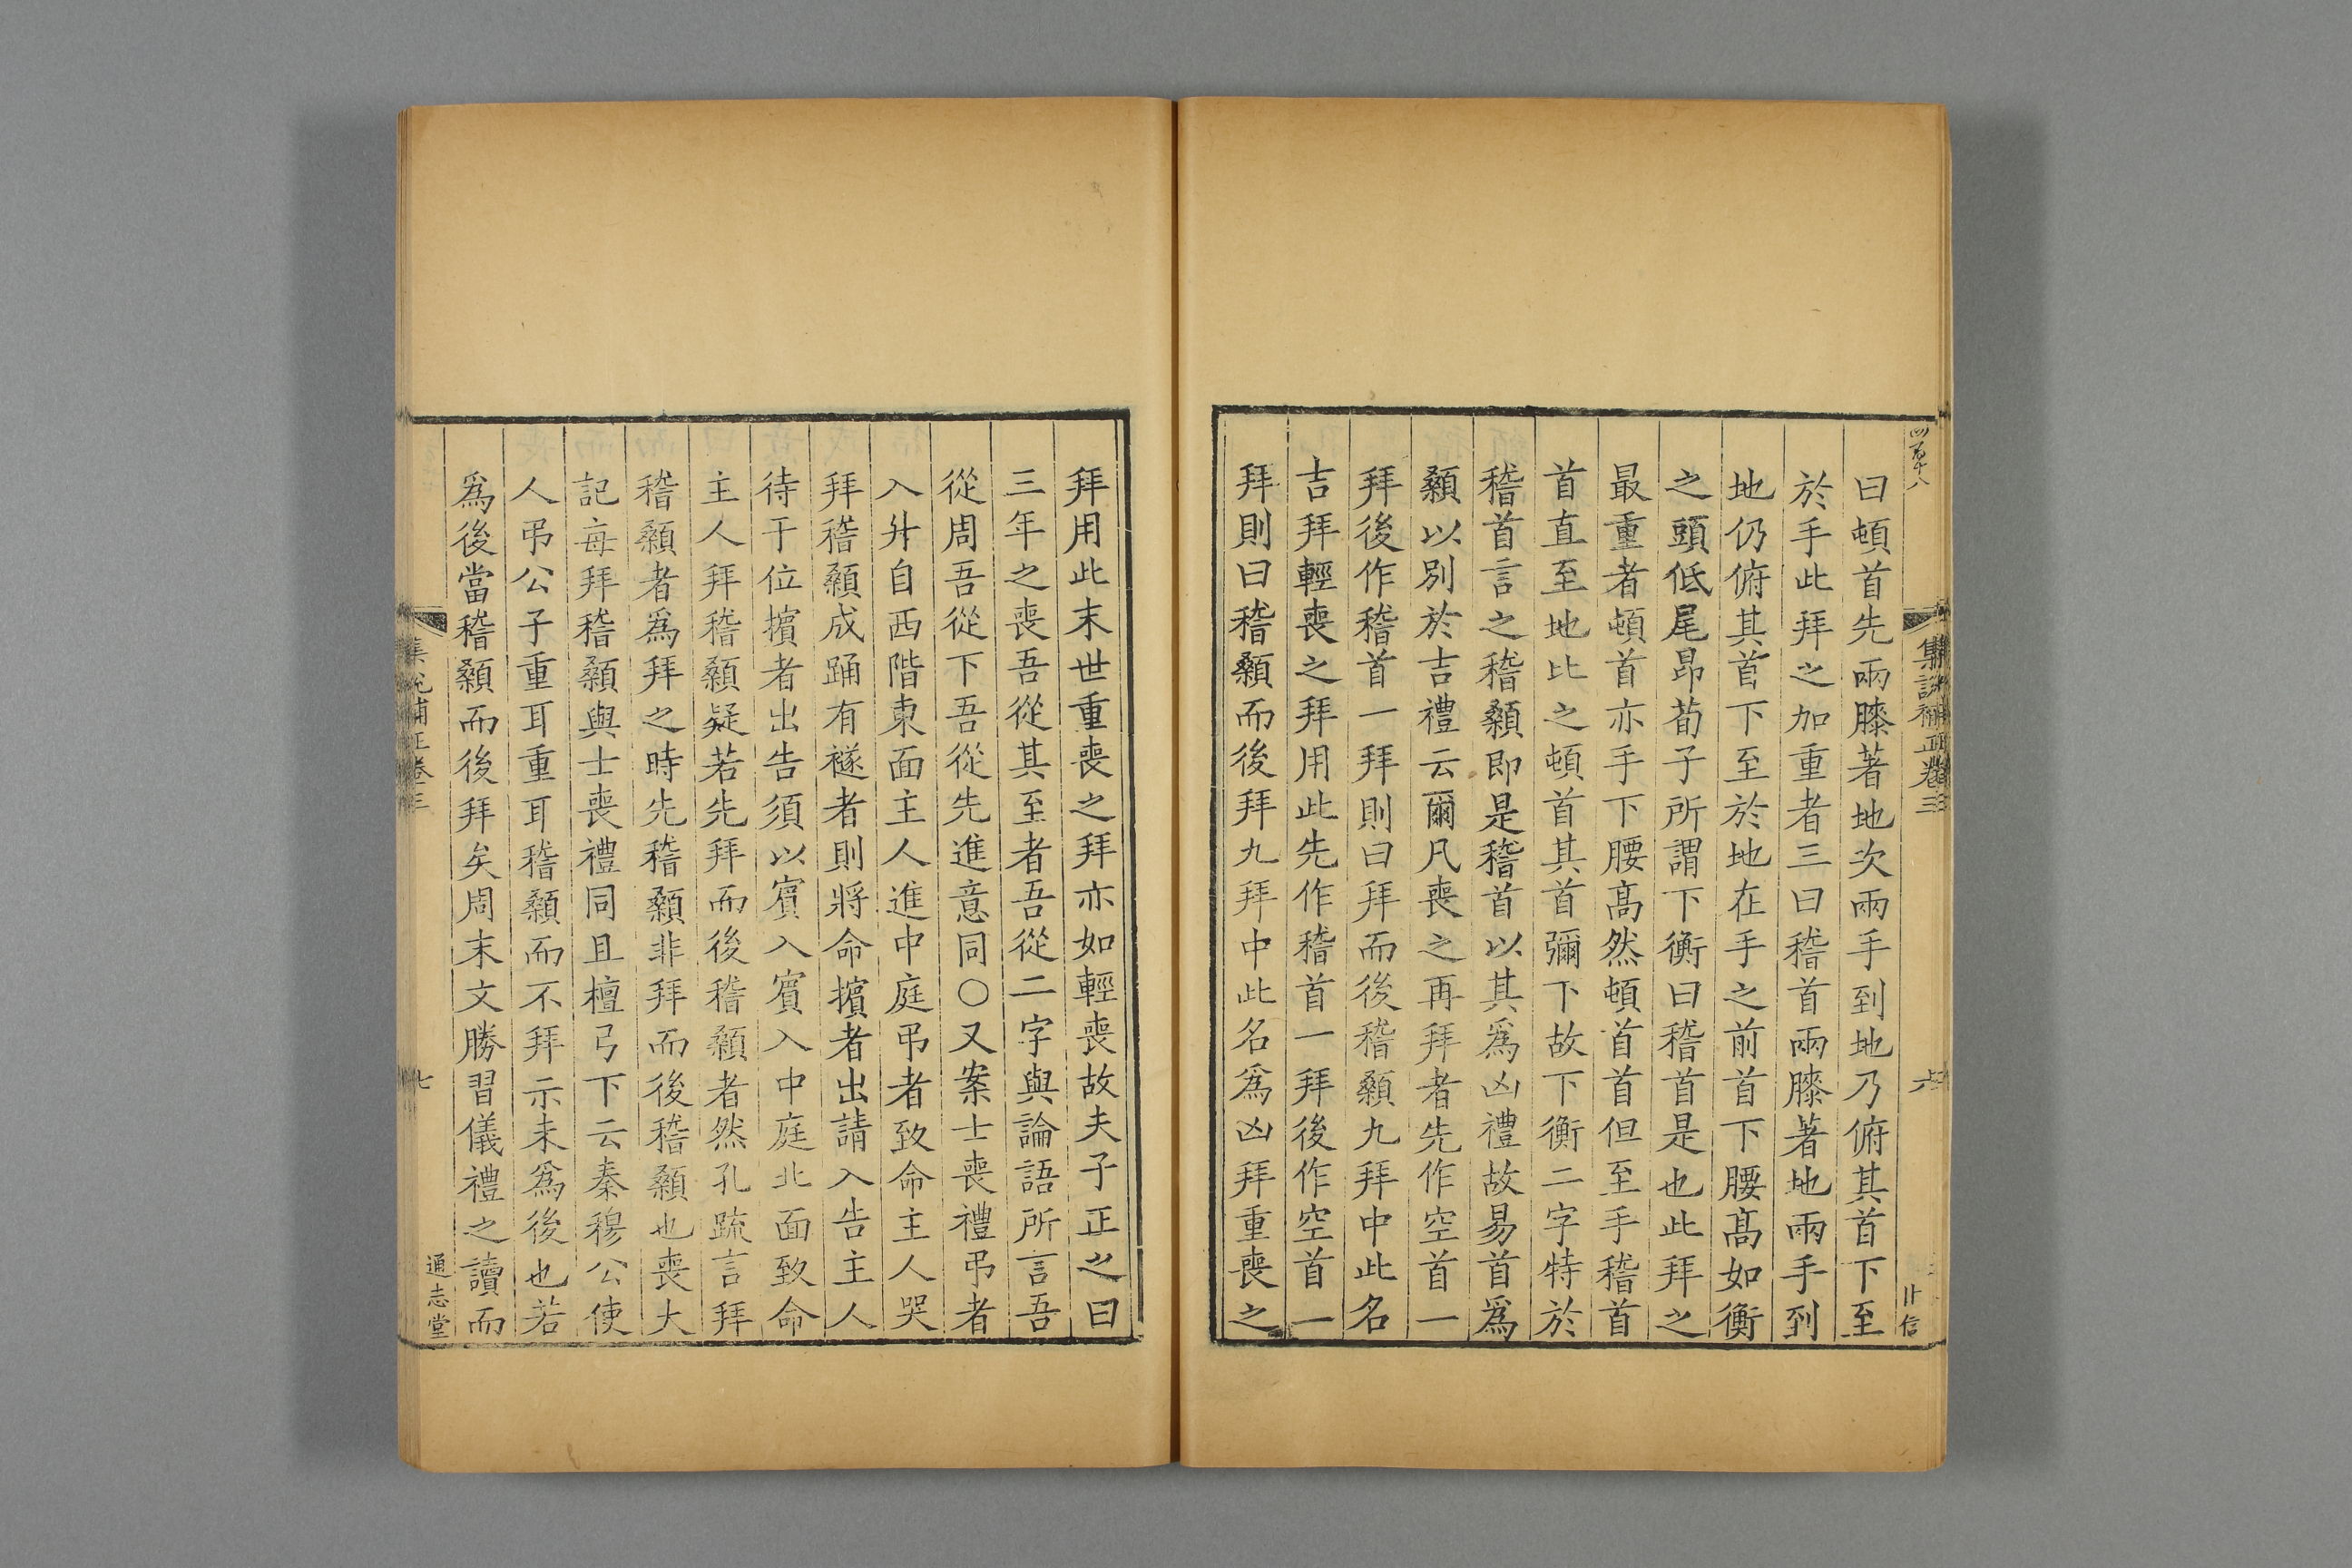 四百十八
集說補正卷三
六
曰頓首先兩膝著地次兩手到地乃俯其首下至
於手此拜之加重者三曰稽首兩膝著地兩手到
地仍俯其首下至於地在手之前首下腰高如衡
之頭低尾昂荀子所謂下衡曰稽首是也此拜之
最重者頓首亦手下腰高然頓首首但至手稽首
首直至地比之頓首其首彌下故下衡二字特於
稽首言之稽顙即是稽首以其爲凶禮故易首爲
顙以別於吉禮云爾凡喪之再拜者先作空首一
拜後作稽首一拜則曰拜而後稽顙九拜中此名
吉拜輕喪之拜用此先作稽首一拜後作空首一
拜則曰稽顙而後拜九拜中此名爲凶拜重喪之
拜用此末世重喪之拜亦如輕喪故夫子正之曰
三年之喪吾從其至者吾從二字與論語所言吾
從周吾從下吾從先進意同○又案士喪禮弔者
入升自西階東面主人進中庭弔者致命主人哭
拜稽顙成踊有襚者則將命擯者出請入告主人
待于位擯者出告須以賓入賓入中庭北面致命
主人拜稽顙疑若先拜而後稽顙者然孔疏言拜
稽顙者爲拜之時先稽顙非拜而後稽顙也喪大
記每拜稽顙與士喪禮同且檀弓下云秦穆公使
人弔公子重耳重耳稽顙而不拜示未爲後也若
爲後當稽顙而後拜矣周末文勝習儀禮之讀而
集說補正卷三
七
通志堂